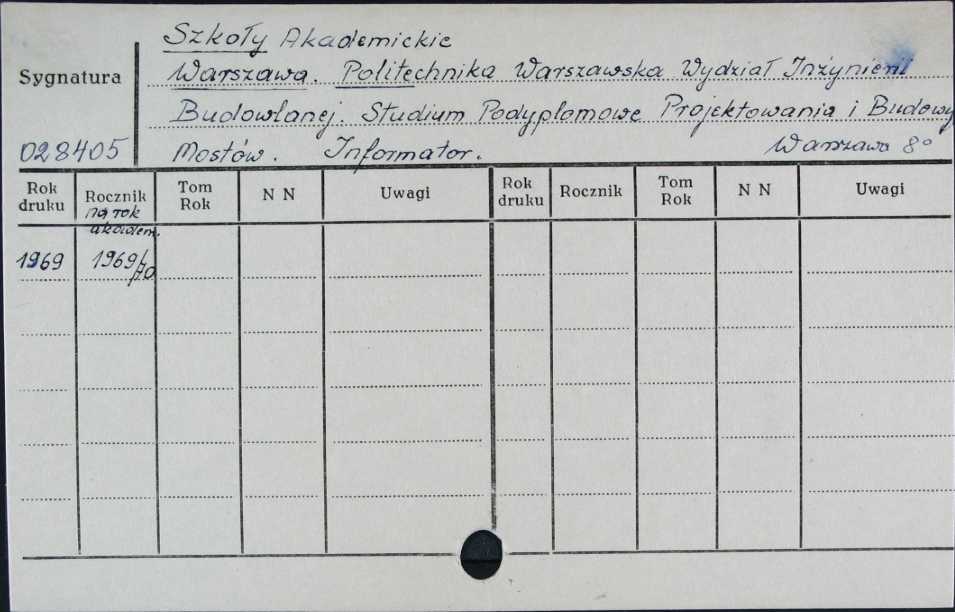 Szkoły Akademickie
Sygnatura
Warszawa. Politechnika Warszawska Wydział Inżynierii
Budowlanej. Studium Podyplomowe Projektowania i Budowy
028405
Mostów. Informator. Warszawa 8°
Rok druku Rocznik Tom Rok N N Uwagi Rok druku Rocznik Tom Rok N N Uwagi
na rok
akadem.
1969 1969/70